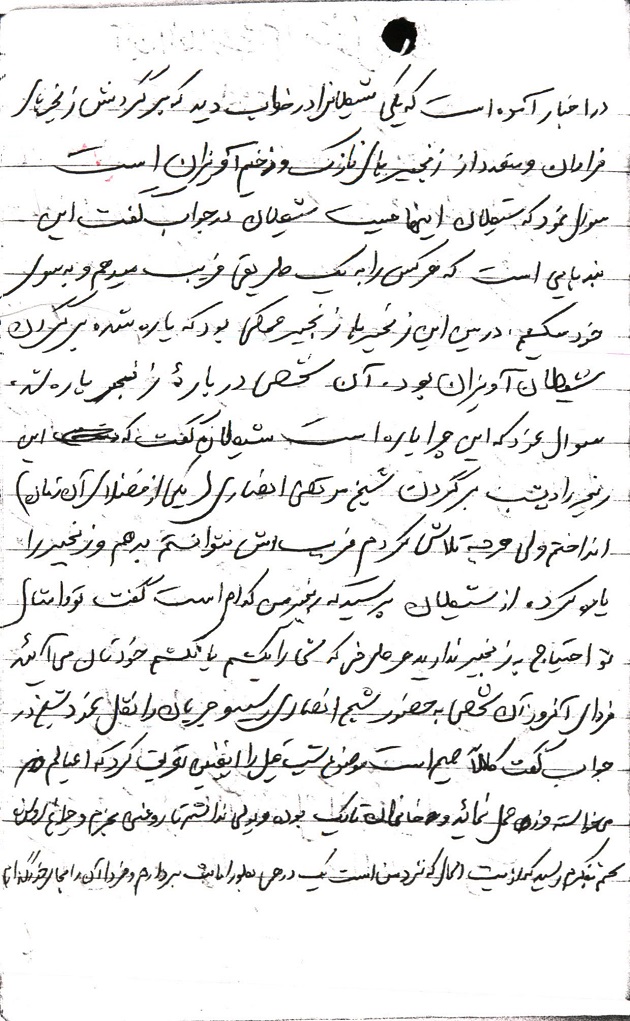 در اخبار آمده است که یکی شیطان را در خواب دید که بر گردنش زنجیرهای
فراوان و متعدد از زنجیرهای نازک و ضخیم آویزان است
سوال نمود که شیطان اینها چیست شیطان در جواب گفت این
بندهایی است که هر کس را به یک طریقی فریب میدهم و به سوی
خود میکشم. در بین این زنجیرها زنجیر محکمی بود که پاره شده بر گردن
شیطان آویزان بود. آن شخص در بارهٔ زنجیر پاره شده
سوال نمود که این چرا پاره است شیطان گفت که این
زنجیر را دیشب بر گردن شیخ مرتضی انصاری (یکی از فضلای آن زمان)
انداختم ولی هر چه تلاش کردم فریب اش نتوانستم بدهم و زنجیر را
پاره کرد. از شیطان پرسید که زنجیر من کدام است گفت تو و امثال
تو احتیاج به زنجیر ندارید هر طرفی که شما را بکشم یا نکشم خودتان می آئید
فردای آنروز آن شخص به حضور شیخ انصاری رسید و جریان را نقل نمود شیخ در
جواب گفت کاملاً صحیح است موضوع شب قبل را اینچنین تعریف کرد که اعیالم
می خواسته وضع حمل نماید و خانه مان تاریک بوده و پولی نداشتم تا روغنی بخرم و چراغ روشن
کنم بفکرم رسید که از بیت المال که نزد من است یک درهمی بطور امانت بردارم و فردا آن را بجای خود